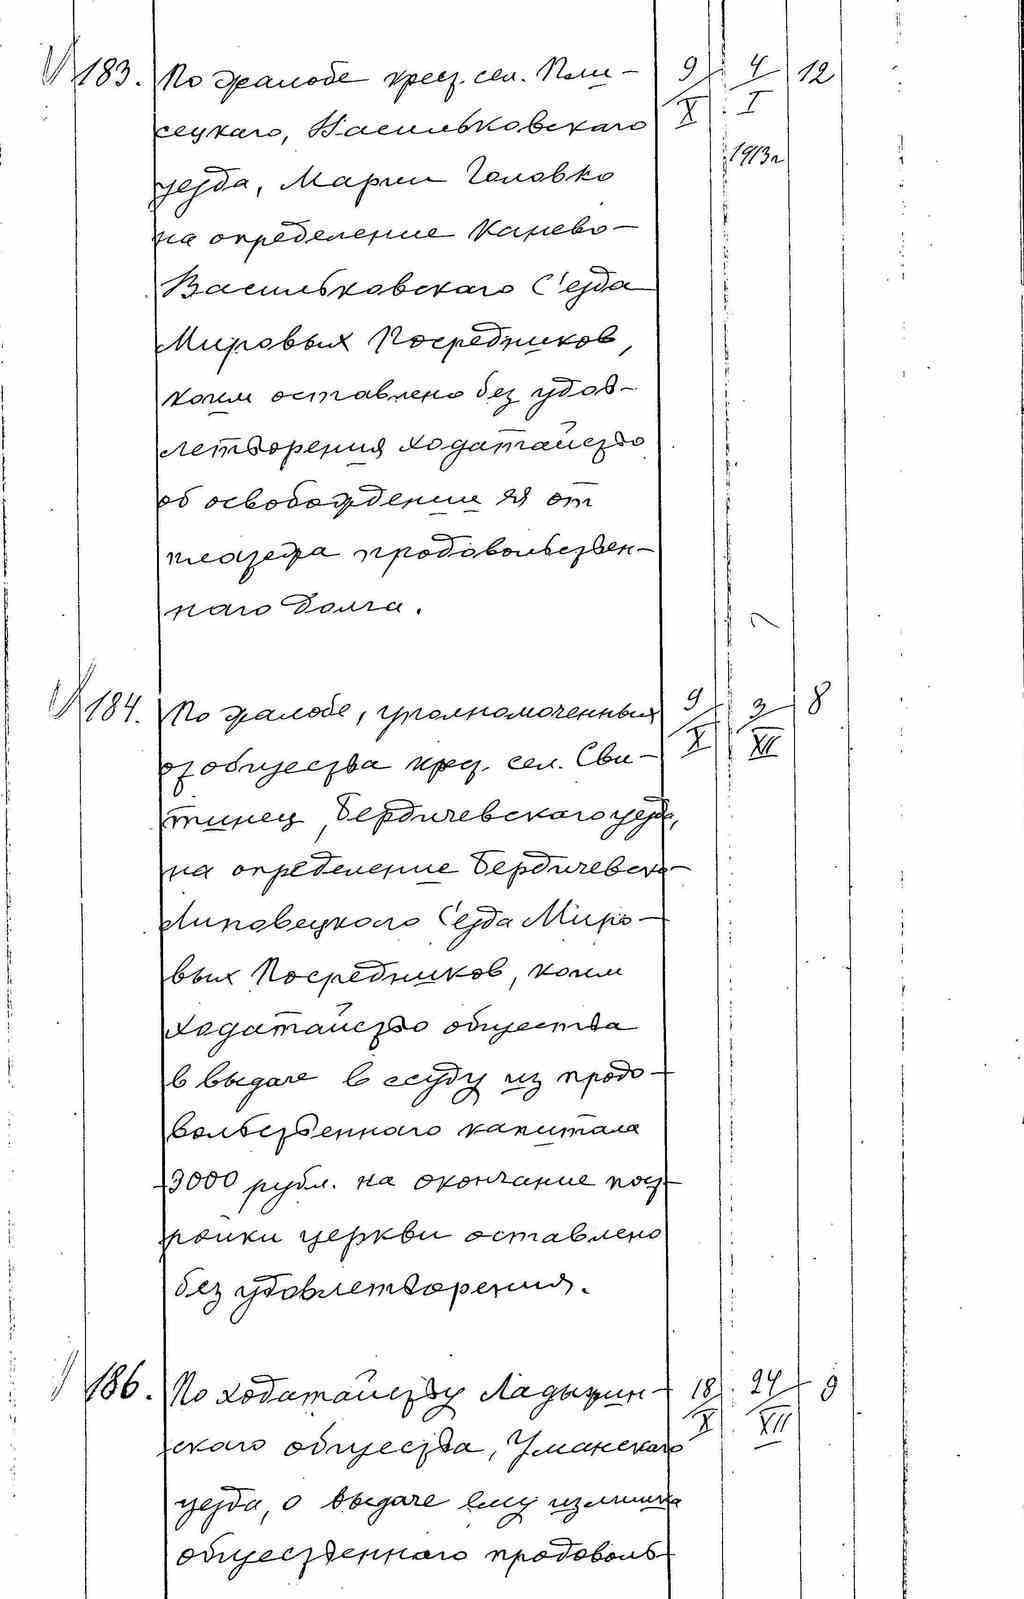 183. По жалобе крест. сел. Пли- 9/X 4/I 12
сецкаго, Васильковскаго 1913 г
уезда, Марии Головко
на определение Канево-
Васильковскаго С'езда
Мировых Посредников,
коим оставлено без удов-
летворения ходатайство
об освобождении ея от
платежа продовольствен-
наго долга.
184. По жалобе, уполномоченных 9/X 3/XII 8
от общества крест. сел. Сви-
тинец, Бердичевскаго уезда,
на определение Бердичевско-
Липовецкого С'езда Миро-
вых Посредников, коим
ходатайство общества
в выдаче в ссуду из продо-
вольственнаго капитала
3000 рубл. на окончание пост-
ройки церкви оставлено
без удовлетворения.
186. По ходатайству Ладыжин- 18/X 24/XII 9
скаго общества, Уманскаго
уезда, о выдаче ему излишка
общественнаго продоволь-